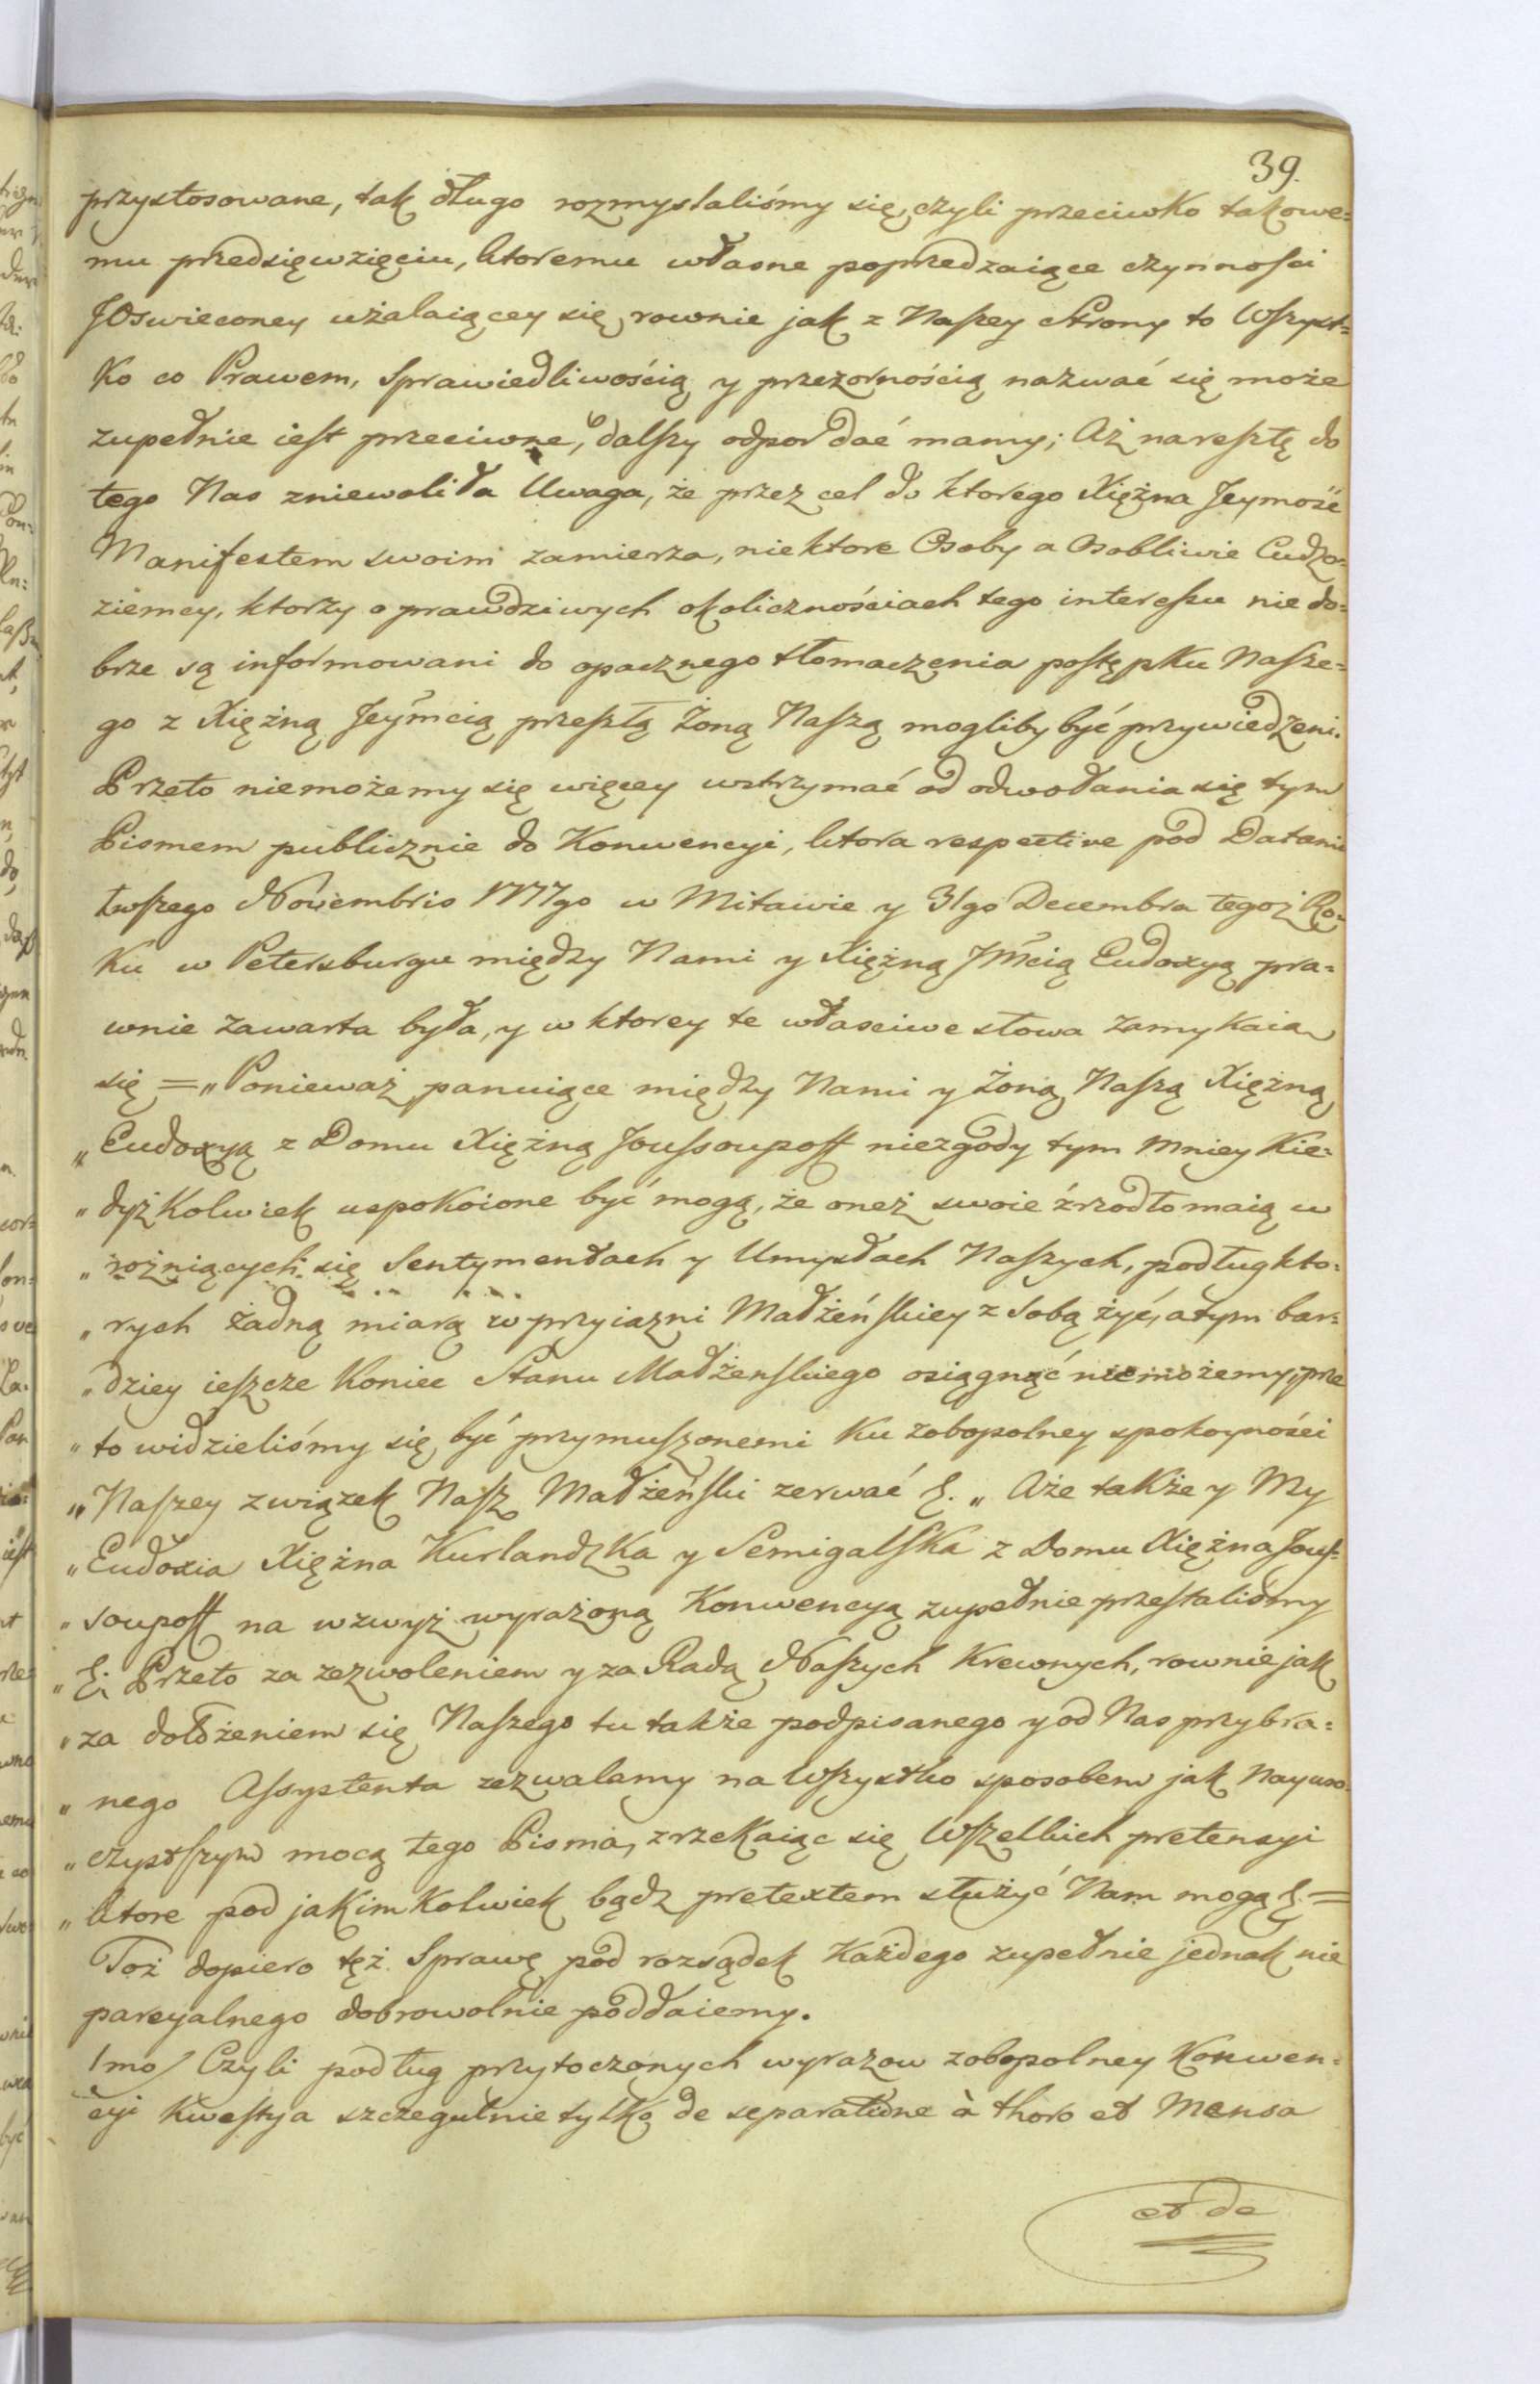 39.
przystosowane, tak długo rozmyslaliśmy się, czyli przeciwko takowe=
mu przedsięwzięciu, ktoremu własne poprzedzaiące czynnosci
JOswieconey użalaiącey się, rownie jak z Naszey Strony to Wszyst=
ko co Prawem, Sprawiedliwością y przezornością nazwać się może
zupełnie iest przeciwne, dalszy odpor dać mamy; Aż naresztę do
tego Nas zniewoliła Uwaga, że przez cel do ktorego Xiężna Jeymość
Manifestem swoim zamierza, niektore Osoby a Osobliwie Cudzo=
ziemcy, ktorzy o prawdziwych okolicznościach tego interessu nie do=
brze są informowani do opacznego tłomaczenia postępku Nasze=
go z Xiężną Jeymcią przeszłą Żoną Naszą mogliby być przywiedzeni.
Przeto niemożemy się więcey wstrzymać od odwołania się tym
Pismem publicznie do Konwencyi, ktora respective pod Datami
Novembris 1777go w Mitawie y 31go Decembra tegoż Ro=
ku w Petersburgu między Nami y Xiężną JMcią Eudoxyą pra=
wnie zawarta była, y w ktorey te własciwe słowa zamykaią
się = „Ponieważ panuiące między Nami y Żoną Naszą Xiężną
„Eudoxyą z Domu Xiężną Joussoupoff niezgody tym mniey kie=
„dyżkolwiek uspokoione być mogą, że oneż swoie źrzodło maią w
„rożniących się Sentymentach y Umysłach Naszych, podług kto=
„rych żadną miarą w przyiazni Małżeńskiey z Sobą żyć, a tym bar=
„dziey ieszcze Koniec Stanu Małżenskiego osiągnąć niemożemy, prze
„to widzieliśmy się być przymuszonemi ku zobopolney spokoyności
„Naszey związek Nasz Małżeński zerwać &. „ Aże także y My
„Eudoxia Xiężna Kurlandzka y Semigalska z Domu Xiężna Jous=
„soupoff na wzwyż wyrażoną Konwencyą zupełnie przestaliśmy
„&. Przeto za zezwoleniem y za Radą Naszych Krewnych, rownie jak
„za dołożeniem się Naszego tu także podpisanego y od Nas przybra=
„nego Assystenta zezwalamy na Wszystko sposobem jak Nayuro=
„czystszym mocą tego Pisma, zrzekaiąc się Wszelkich pretensyi
„ktore pod jakimkolwiek bądz pretextem służyć Nam mogą &. =
Toż dopiero tęż Sprawę pod rozsądek Każdego zupełnie jednak nie
parcyalnego dobrowolnie poddaiemy.
1mo/ Czyli podług przytoczonych wyrazow zobopolney Konwen=
cyi Kwestya szczegulnie tylko de separatione à thoro et Mensa
et de